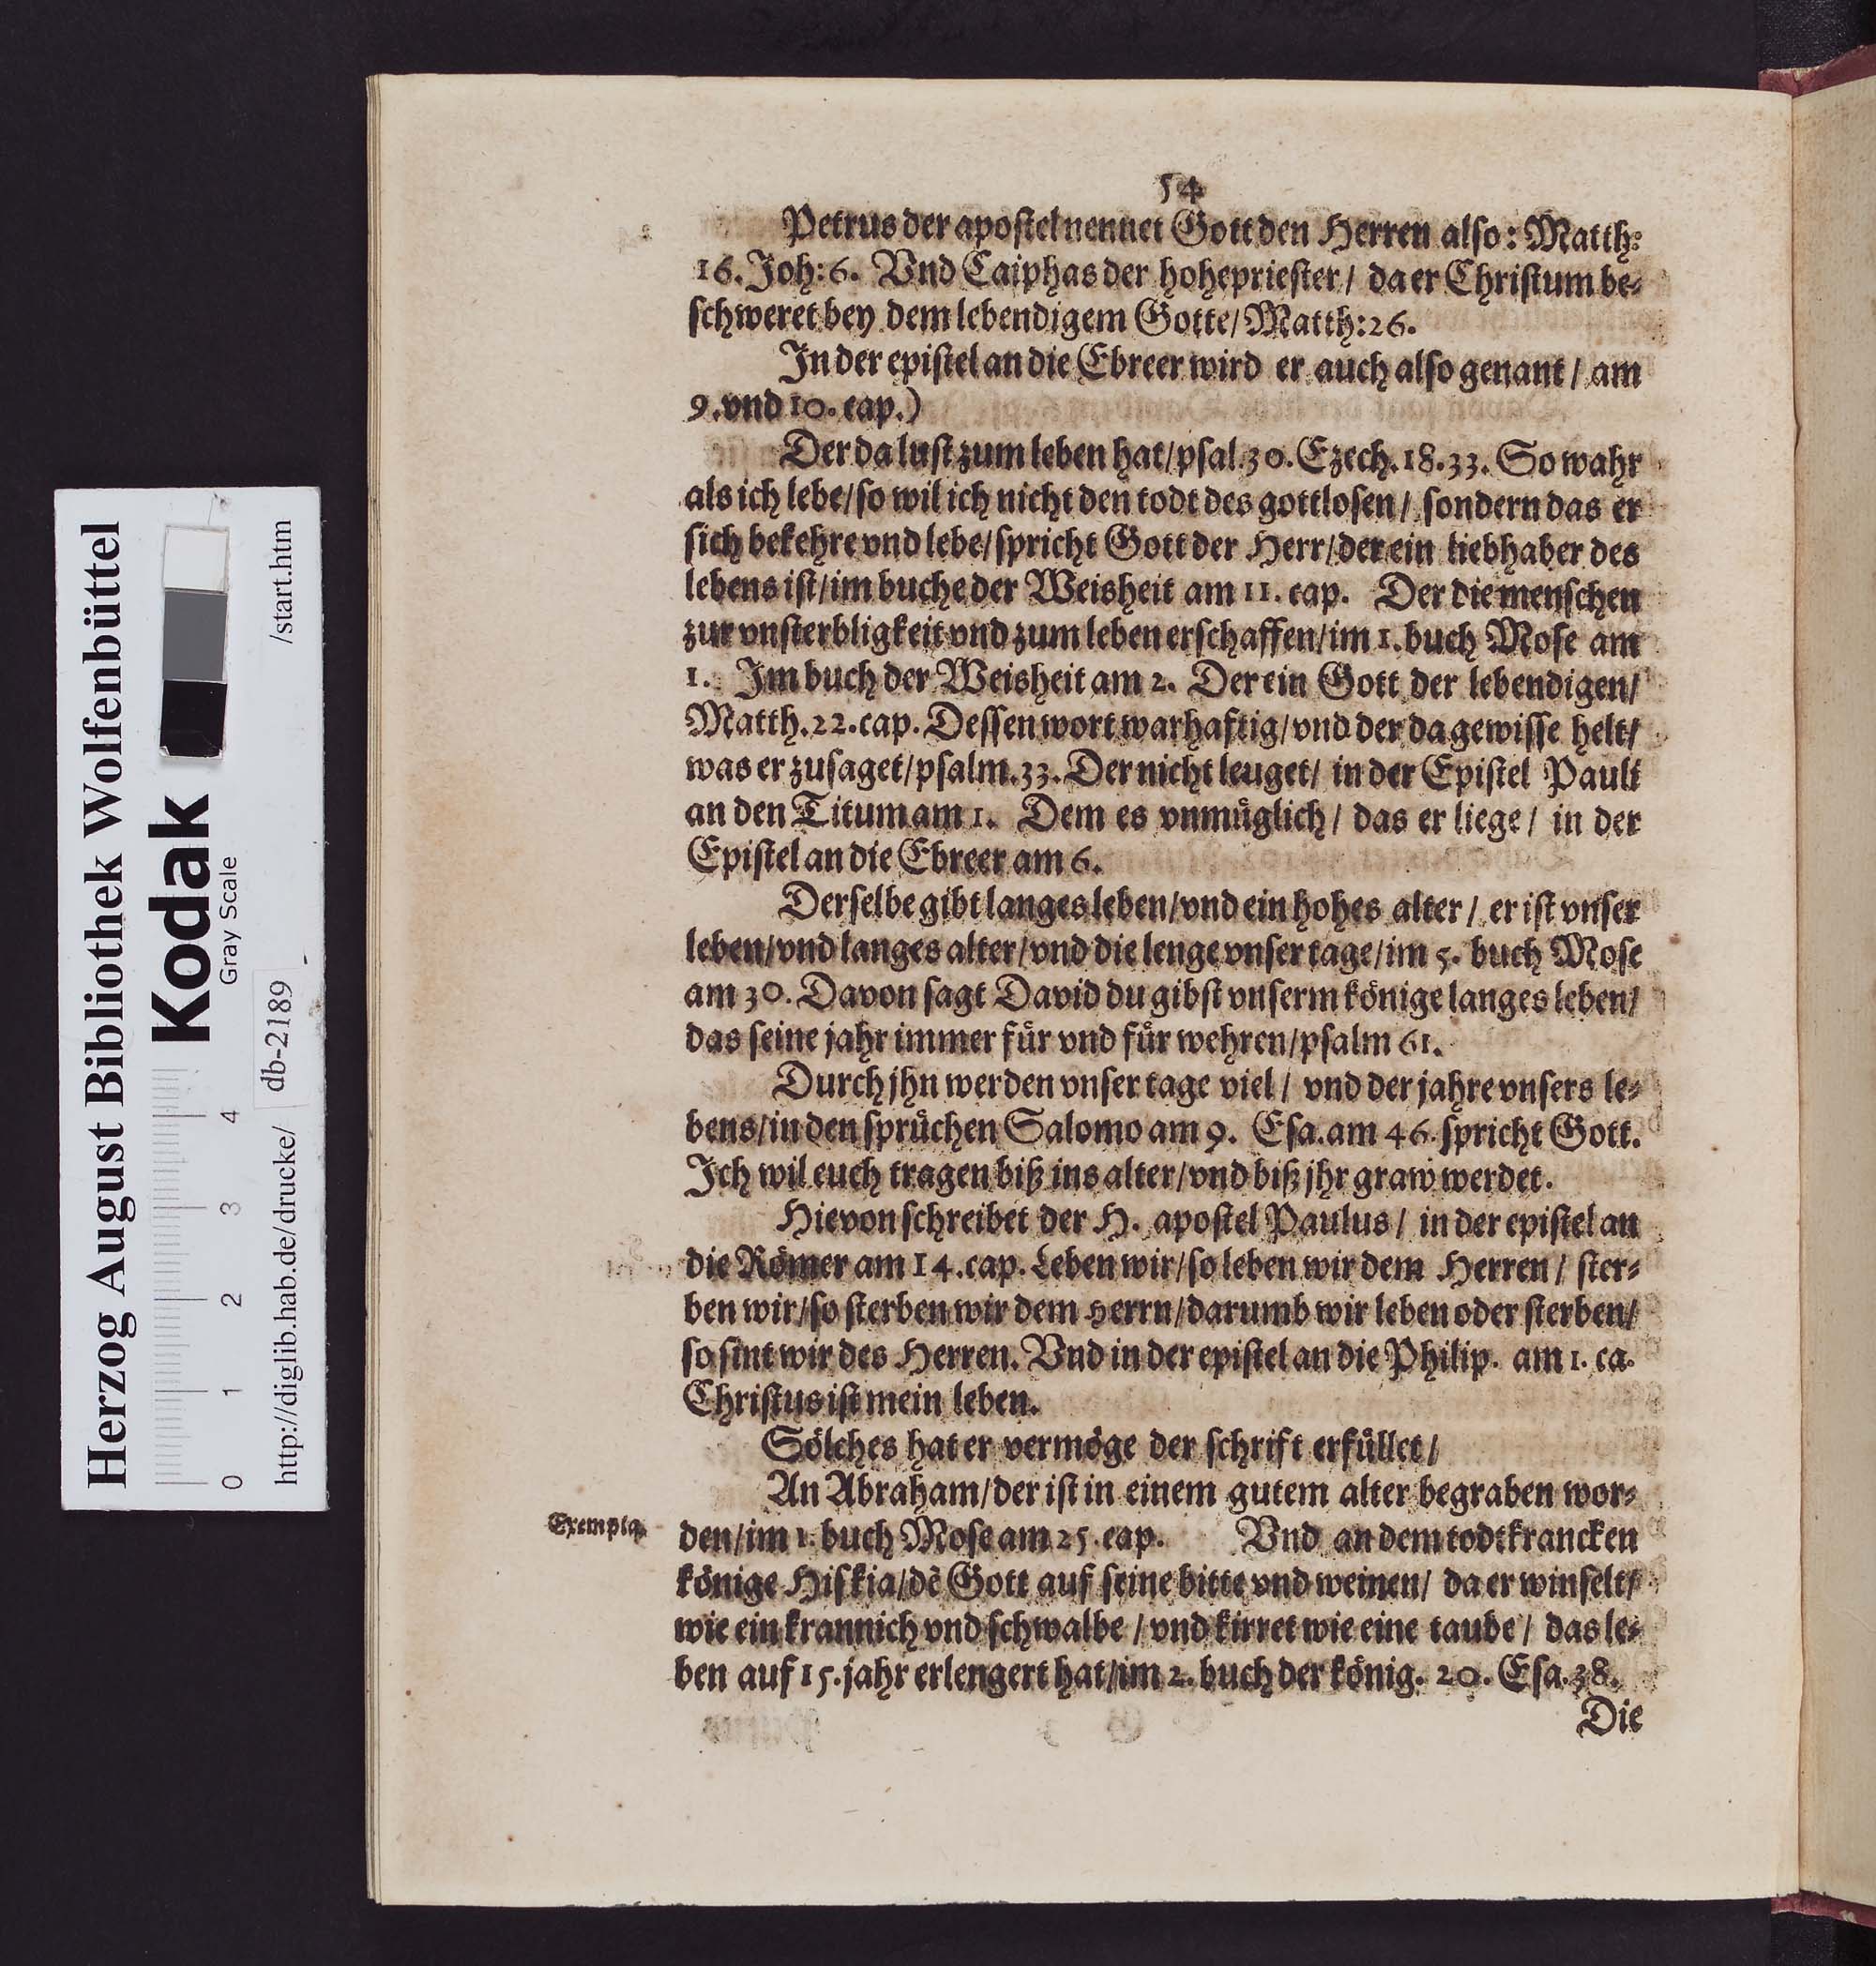 54
Petrus der apostel nennet Gott den Herren also: Matth:
16. Joh: 6. Vnd Caiphas der hohepriester / da er Christum be-
schweret bey dem lebendigem Gotte / Matth: 26.
In der epistel an die Ebreer wird er auch also genant / am
9. vnd 10. cap.)
Der da lust zum leben hat / psal. 30. Ezech. 18. 33. So wahr
als ich lebe / so wil ich nicht den todt des gottlosen / sondern das er
sich bekehre vnd lebe / spricht Gott der Herr / der ein liebhaber des
lebens ist / im buche der Weisheit am 11. cap. Der die menschen
zur vnsterbligkeit vnd zum leben erschaffen / im 1. buch Mose am
1. Im buch der Weisheit am 2. Der ein Gott der lebendigen /
Matth. 22. cap. Dessen wort warhaftig / vnd der da gewisse helt /
was er zusaget / psalm. 33. Der nicht leuget / in der Epistel Pauli
an den Titum am 1. Dem es vnmüglich / das er liege / in der
Epistel an die Ebreer am 6.
Derselbe gibt langes leben / vnd ein hohes alter / er ist vnser
leben / vnd langes alter / vnd die lenge vnser tage / im 5. buch Mose
am 30. Davon sagt David du gibst vnserm könige langes leben /
das seine jahr immer für vnd für wehren / psalm 61.
Durch jhn werden vnser tage viel / vnd der jahre vnsers le-
bens / in den sprüchen Salomo am 9. Esa. am 46. spricht Gott.
Ich wil euch tragen biß ins alter / vnd biß jhr graw werdet.
Hievon schreibet der H. apostel Paulus / in der epistel an
die Römer am 14. cap. Leben wir / so leben wir dem Herren / ster-
ben wir / so sterben wir dem Herrn / darumb wir leben oder sterben /
so sint wir des Herren. Vnd in der epistel an die Philip. am 1. ca.
Christus ist mein leben.
Sölches hat er vermöge der schrift erfüllet /
An Abraham / der ist in einem gutem alter begraben wor-
Exempla.
den / im 1. buch Mose am 25. cap. Vnd an dem todtkrancken
könige Hiskia / dē Gott auf seine bitte vnd weinen / da er winselt /
wie ein krannich vnd schwalbe / vnd kirret wie eine taube / das le-
ben auf 15. jahr erlengert hat / im 2. buch der könig. 20. Esa. 38.
Die
Herzog August Bibliothek Wolfenbüttel
Kodak
Gray Scale
0 1 2 3 4
http://diglib.hab.de/drucke/ db-2189 /start.htm